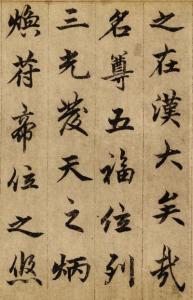 之在漢大矣哉
名尊五福位列
三光發天之炳
煥苻帝位之悠